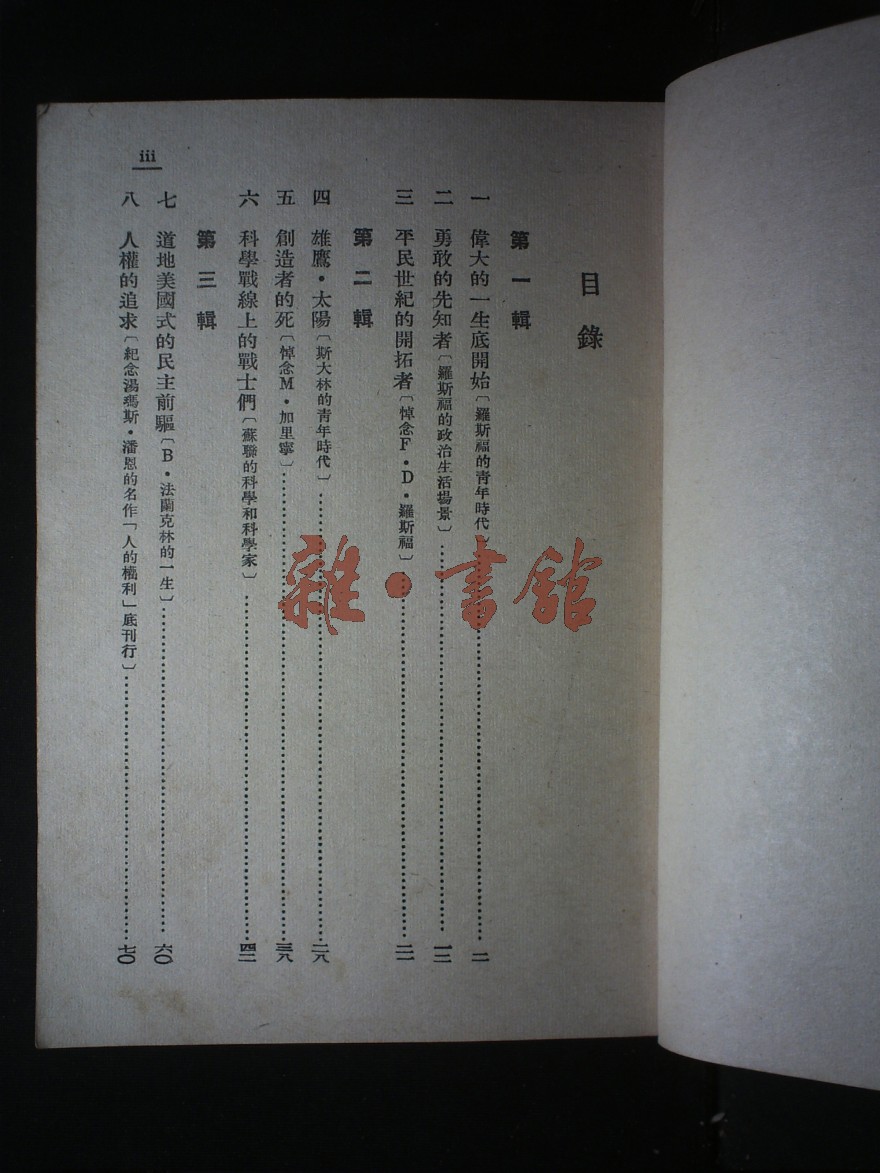 目錄
第一輯
一 偉大的一生底開始〔羅斯福的青年時代〕……二
二 勇敢的先知者〔羅斯福的政治生活場景〕……一三
三 平民世紀的開拓者〔悼念F·D·羅斯福〕……二一
第二輯
四 雄鷹·太陽〔斯大林的青年時代〕……二八
五 創造者的死〔悼念M·加里寧〕……三八
六 科學戰線上的戰士們〔蘇聯的科學和科學家〕……四二
第三輯
七 道地美國式的民主前驅〔B·法蘭克林的一生〕……六〇
八 人權的追求〔紀念湯瑪斯·潘恩的名作「人的權利」底刊行〕……七〇
iii
雜·書館